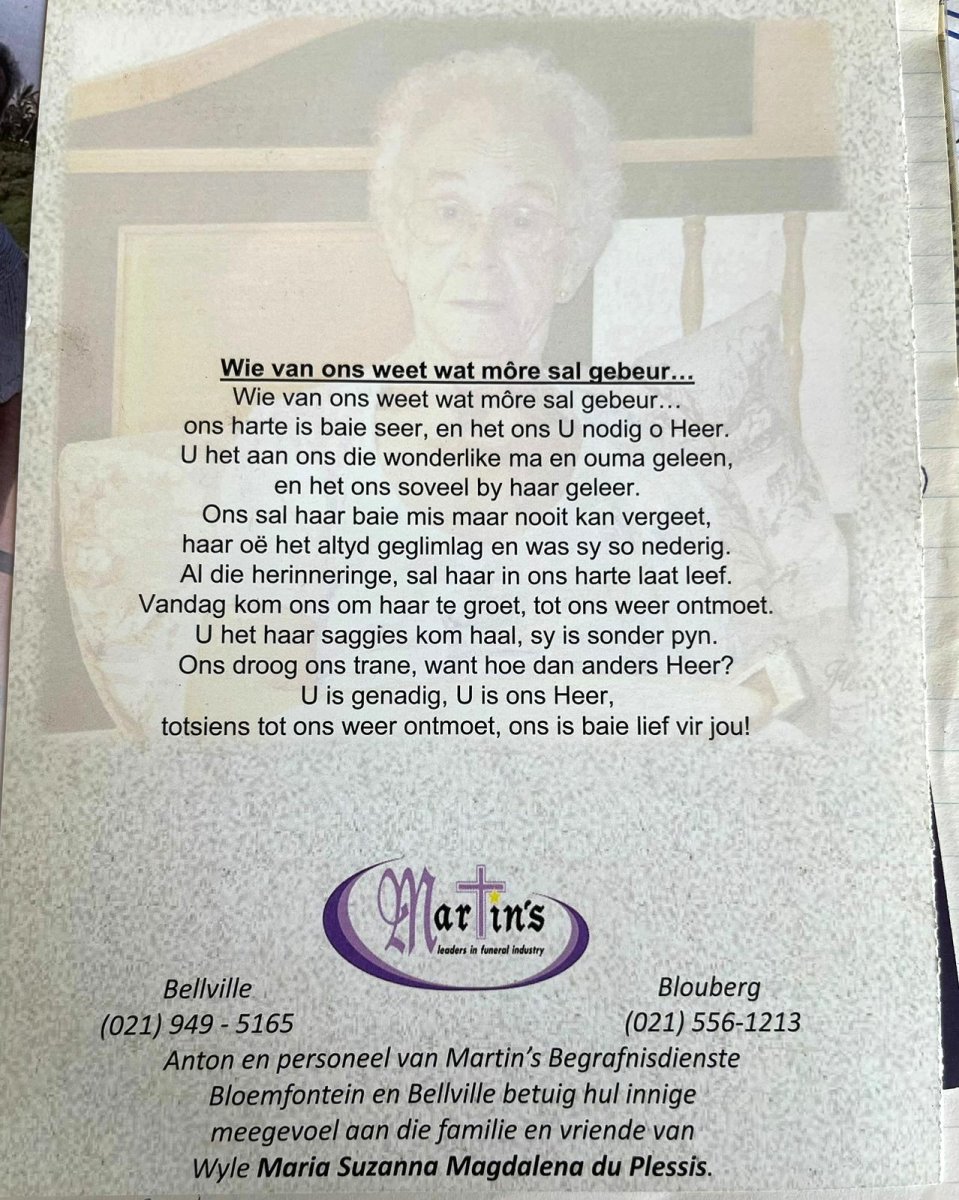 Wie van ons weet wat môre sal gebeur…
Wie van ons weet wat môre sal gebeur…
ons harte is baie seer, en het ons U nodig o Heer.
U het aan ons die wonderlike ma en ouma geleen,
en het ons soveel by haar geleer.
Ons sal haar baie mis maar nooit kan vergeet,
haar oë het altyd geglimlag en was sy so nederig.
Al die herinneringe, sal haar in ons harte laat leef.
Vandag kom ons om haar te groet, tot ons weer ontmoet.
U het haar saggies kom haal, sy is sonder pyn.
Ons droog ons trane, want hoe dan anders Heer?
U is genadig, U is ons Heer,
totsiens tot ons weer ontmoet, ons is baie lief vir jou!
Martin's
leaders in funeral industry
Bellville
(021) 949 - 5165
Blouberg
(021) 556-1213
Anton en personeel van Martin's Begrafnisdienste
Bloemfontein en Bellville betuig hul innige
meegevoel aan die familie en vriende van
Wyle Maria Suzanna Magdalena du Plessis.